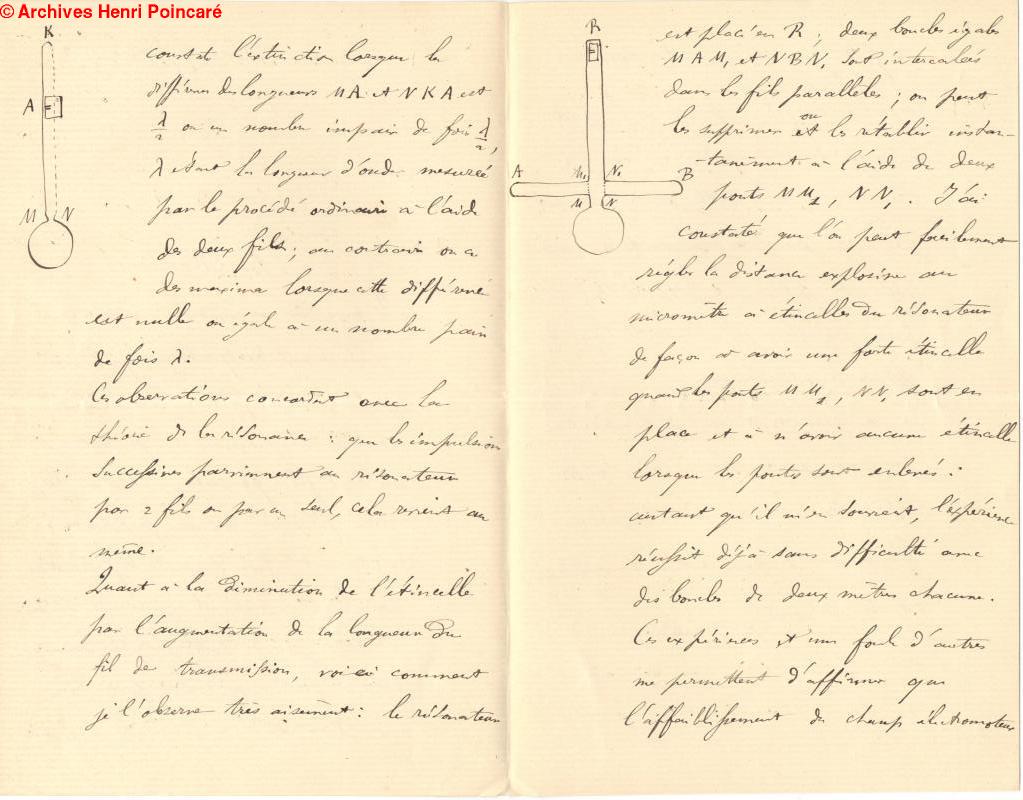 © Archives Henri Poincaré
K
A
M N
constate l'extinction lorsque la
différence des longueurs MA et NKA est
λ/2 ou un nombre impair de fois λ/2,
λ étant la longueur d'onde mesurée
par le procédé ordinaire à l'aide
des deux fils ; au contraire on a
des maxima lorsque cette différence
est nulle ou égale à un nombre pair
de fois λ.
Ces observations concordent avec la
théorie de la résonance : que les impulsions
successives parviennent au résonateur
par 2 fils ou par un seul, cela revient au
même.
Quant à la diminution de l'étincelle
par l'augmentation de la longueur du
fil de transmission, voici comment
je l'observe très aisément : le résonateur
R
A M₁ N₁ B
M N
est placé en R ; deux boucles égales
MAM₁ et NBN₁ sont intercalées
dans les fils parallèles ; on peut
les supprimer et ou les rétablir instan-
-tanément à l'aide de deux
ponts MM₁, NN₁. J'ai
constaté que l'on peut facilement
régler la distance explosive au
micromètre à étincelles du résonateur
de façon à avoir une forte étincelle
quand les ponts MM₁, NN₁ sont en
place et à n'avoir aucune étincelle
lorsque les ponts sont enlevés :
autant qu'il m'en souvient, l'expérience
réussit déjà sans difficulté avec
des boucles de deux mètres chacune.
Ces expériences et une foule d'autres
me permettent d'affirmer que
l'affaiblissement du champ électromoteur